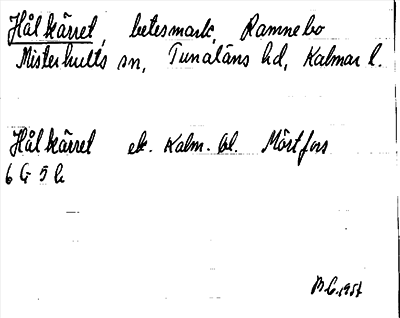 Hålkärret, betesmark, Ramnebo
Misterhults sn, Tunaläns hd, Kalmar l.
Hålkärret ek. Kalm. bl. Mörtfors
6 G 5 b
B.G. 1957